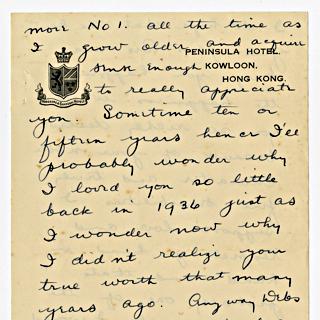 more No 1. all the time as
I grow older and acquire
PENINSULA HOTEL.
sense enough
KOWLOON,
HONG KONG.
to really appreciate
you. Sometime ten or
fifteen years hence I'll
probably wonder why
I loved you so little
back in 1936 just as
I wonder now why
I didn't realize your
true worth that many
years ago. Anyway Debs